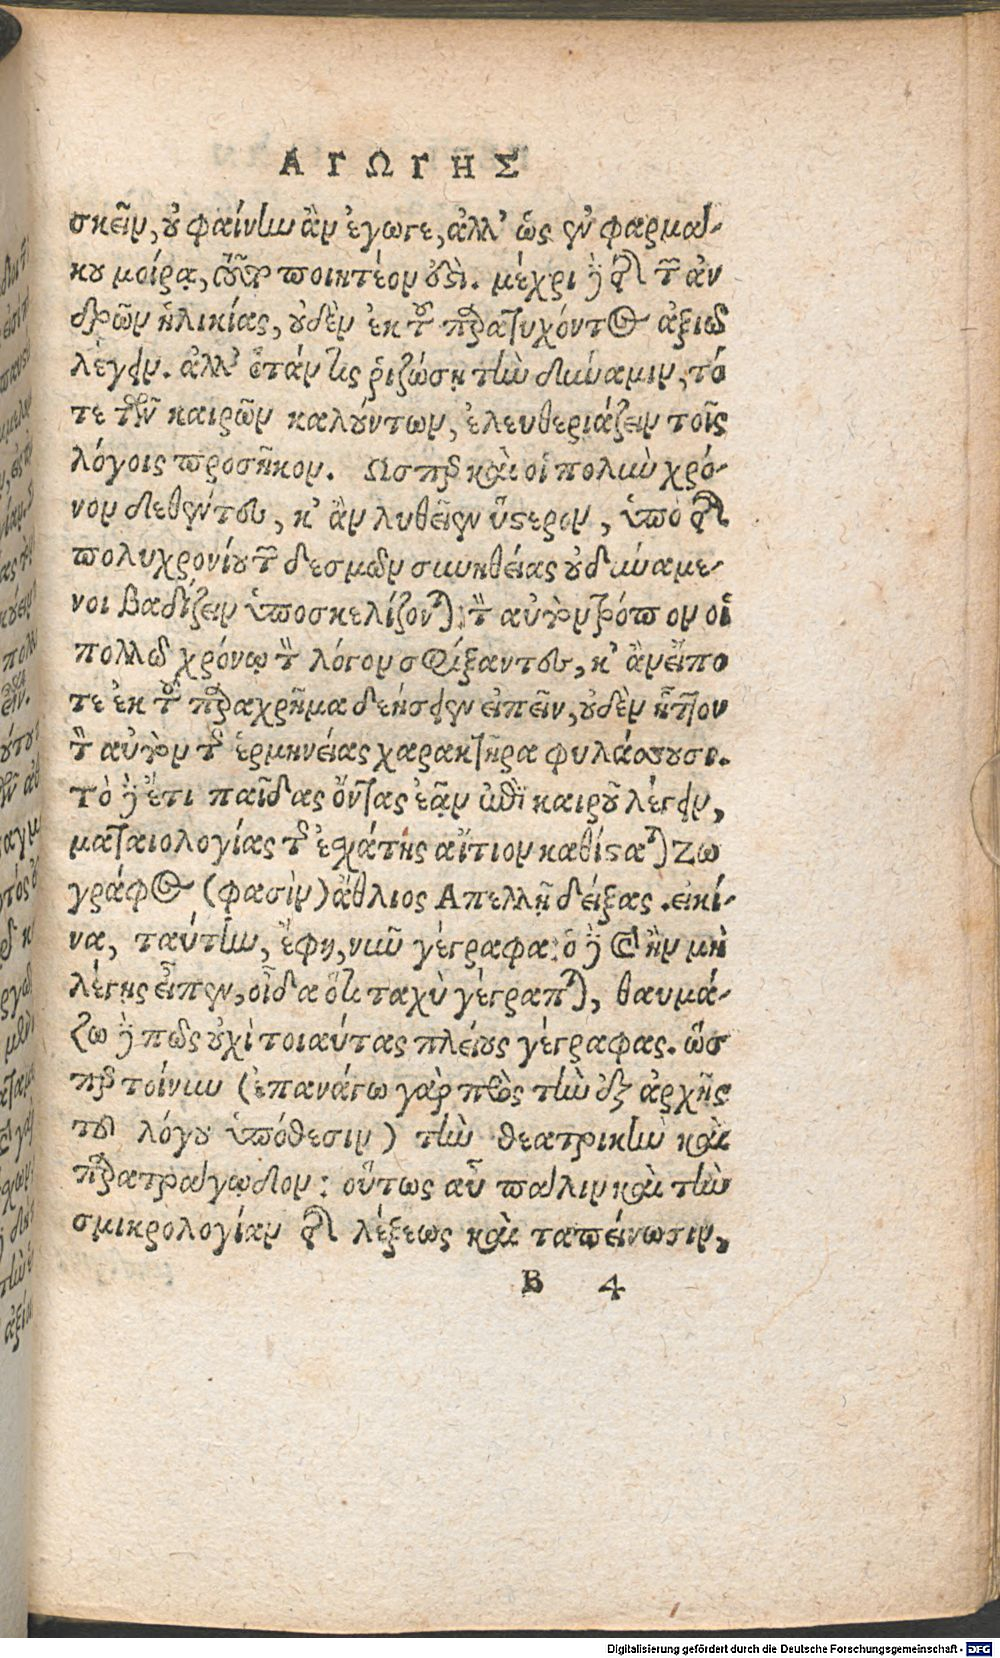 ΑΓΩΓΗΣ
σκεῖν, οὐ φαίην ἂν ἔγωγε, ἀλλ' ὡς ἐν φαρμά-
κου μοίρᾳ, τοῦτο ποιητέον οὐδέν. μέχρι δὴ τῆς τῶν ἀν
δρῶν ἡλικίας, οὐδὲν ἐκ τοῦ παρατυχόντος ἀξιῶ
λέγειν. ἀλλ' ὅταν τις ῥιζώσῃ τὴν δύναμιν, τό
τε τῶν καιρῶν καλούντων, ἐλευθεριάζειν τοῖς
λόγοις προσῆκον. Ὥσπερ καὶ οἱ πολὺν χρό-
νον δεθέντες, κ' ἂν λυθεῖεν ὕστερον, ὑπὸ τῆς
πολυχρονίου τῶν δεσμῶν συνηθείας οὐ δυνάμε-
νοι βαδίζειν ὑποσκελίζονται) τὸν αὐτὸν τρόπον οἱ
πολλῷ χρόνῳ τὸν λόγον σφίξαντες, κ' ἂν εἴπο
τε ἐκ τοῦ παραχρῆμα δεήσειεν εἰπεῖν, οὐδὲν ἧττον
τὸν αὐτὸν τῆς ἑρμηνείας χαρακτῆρα φυλάσσουσι.
τὸ δὲ ἔτι παῖδας ὄντας ἐᾶν ἐπὶ καιροῦ λέγειν,
ματαιολογίας τῆς ἐσχάτης αἴτιον καθίσταται) Ζω
γράφος (φασὶν) ἄθλιος Ἀπελλῇ δείξας εἰκό-
να, ταύτην, ἔφη, νῦν γέγραφα: ὁ δὲ καὶ ἢν μὴ
λέγῃς εἶπεν, οἶδα ὅτι ταχὺ γέγραπται, θαυμά-
ζω δὲ πῶς οὐχὶ τοιαύτας πλείους γέγραφας. ὥσ
περ τοίνυν (ἐπανάγω γὰρ πρὸς τὴν ἐξ ἀρχῆς
τοῦ λόγου ὑπόθεσιν) τὴν θεατρικὴν καὶ
παρατράγῳδον: οὕτως αὖ πάλιν καὶ τὴν
σμικρολογίαν τῆς λέξεως καὶ ταπείνωσιν,
B 4
Digitalisierung gefördert durch die Deutsche Forschungsgemeinschaft - DFG